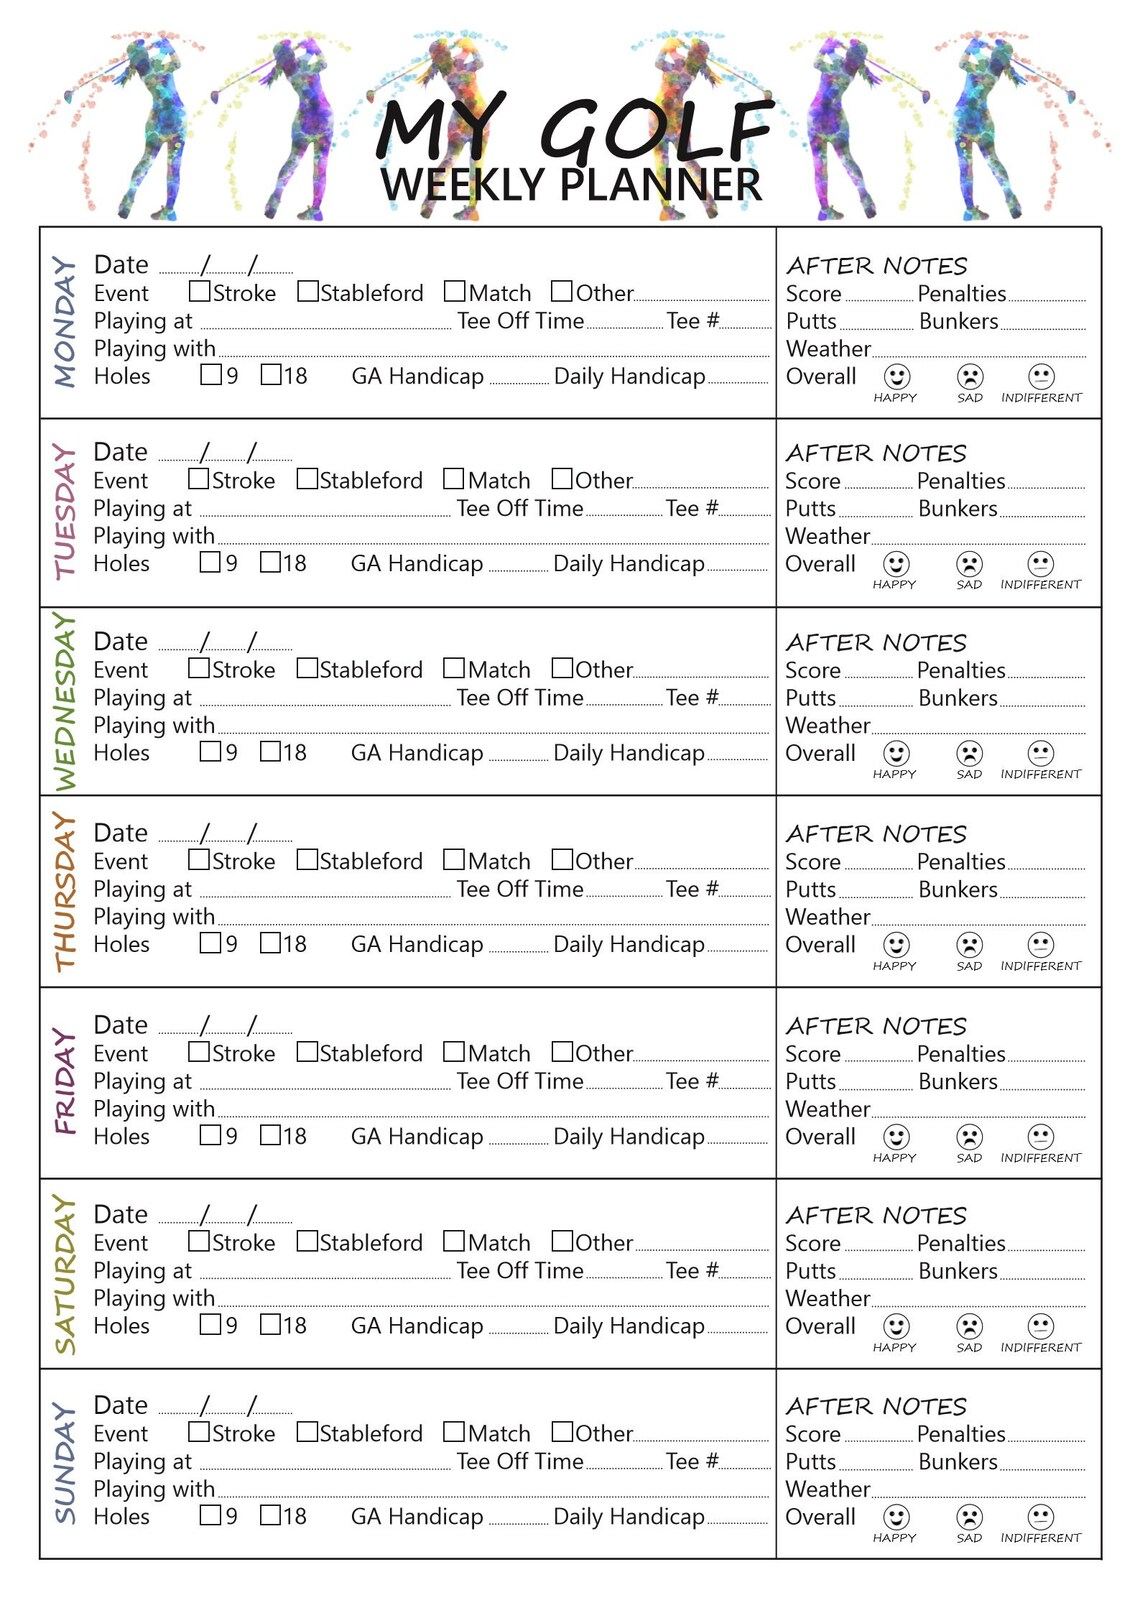 MY GOLF
WEEKLY PLANNER
MONDAY
Date ....../....../......
Event Stroke Stableford Match Other
Playing at Tee Off Time Tee #
Playing with
Holes 9 18 GA Handicap Daily Handicap
AFTER NOTES
Score Penalties
Putts Bunkers
Weather
Overall
HAPPY SAD INDIFFERENT
TUESDAY
Date ....../....../......
Event Stroke Stableford Match Other
Playing at Tee Off Time Tee #
Playing with
Holes 9 18 GA Handicap Daily Handicap
AFTER NOTES
Score Penalties
Putts Bunkers
Weather
Overall
HAPPY SAD INDIFFERENT
WEDNESDAY
Date ....../....../......
Event Stroke Stableford Match Other
Playing at Tee Off Time Tee #
Playing with
Holes 9 18 GA Handicap Daily Handicap
AFTER NOTES
Score Penalties
Putts Bunkers
Weather
Overall
HAPPY SAD INDIFFERENT
THURSDAY
Date ....../....../......
Event Stroke Stableford Match Other
Playing at Tee Off Time Tee #
Playing with
Holes 9 18 GA Handicap Daily Handicap
AFTER NOTES
Score Penalties
Putts Bunkers
Weather
Overall
HAPPY SAD INDIFFERENT
FRIDAY
Date ....../....../......
Event Stroke Stableford Match Other
Playing at Tee Off Time Tee #
Playing with
Holes 9 18 GA Handicap Daily Handicap
AFTER NOTES
Score Penalties
Putts Bunkers
Weather
Overall
HAPPY SAD INDIFFERENT
SATURDAY
Date ....../....../......
Event Stroke Stableford Match Other
Playing at Tee Off Time Tee #
Playing with
Holes 9 18 GA Handicap Daily Handicap
AFTER NOTES
Score Penalties
Putts Bunkers
Weather
Overall
HAPPY SAD INDIFFERENT
SUNDAY
Date ....../....../......
Event Stroke Stableford Match Other
Playing at Tee Off Time Tee #
Playing with
Holes 9 18 GA Handicap Daily Handicap
AFTER NOTES
Score Penalties
Putts Bunkers
Weather
Overall
HAPPY SAD INDIFFERENT